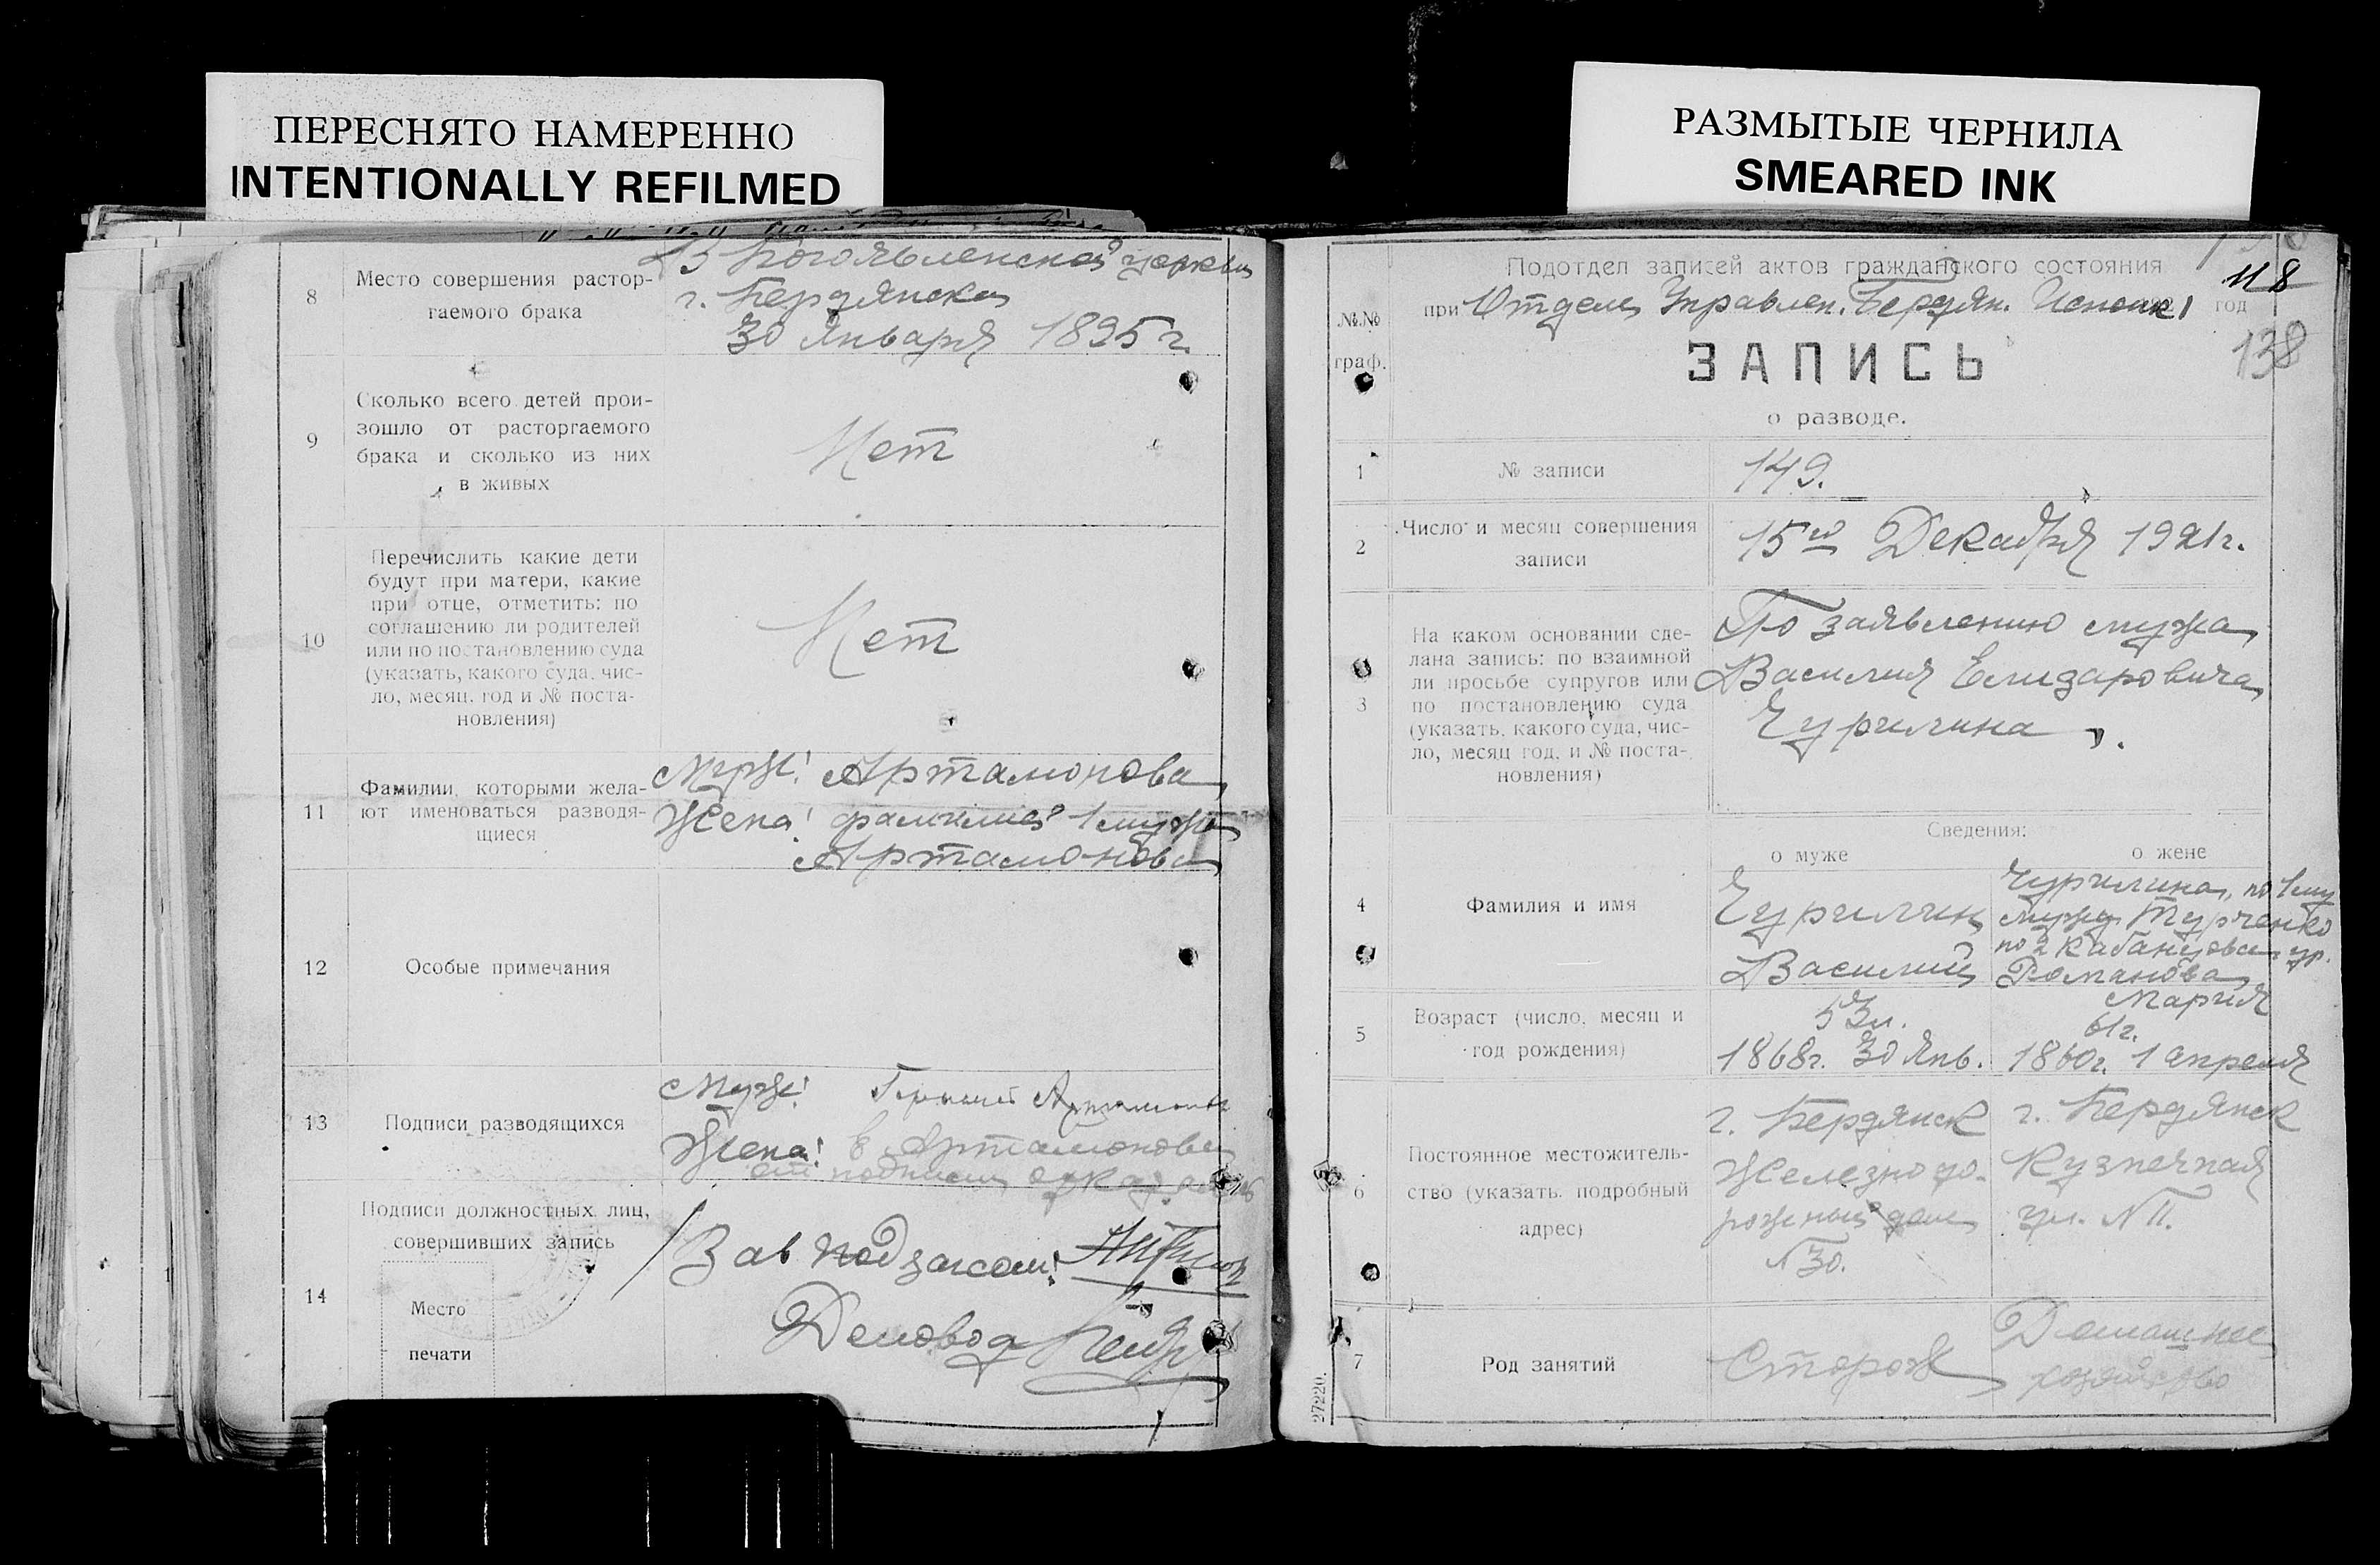 ПЕРЕСНЯТО НАМЕРЕННО
INTENTIONALLY REFILMED
8
Место совершения растор-
гаемого брака
В Богоявленской церкви
г. Бердянска
30 Января 1895 г.
9
Сколько всего детей прои-
зошло от расторгаемого
брака и сколько из них
в живых
Нет
10
Перечислить какие дети
будут при матери, какие
при отце, отметить: по
соглашению ли родителей
или по постановлению суда
(указать, какого суда, чис-
ло, месяц, год и № поста-
новления)
Нет
11
Фамилии, которыми жела-
ют именоваться разводя-
щиеся
Муж: Артамонова
Жена: фамилией 1 мужа
Артамонова
12
Особые примечания
13
Подписи разводящихся
Муж:
Жена: Е Артамонова
от подписи
14
Подписи должностных лиц,
совершивших запись
Место
печати
Зав подзагсом:
Деловод
РАЗМЫТЫЕ ЧЕРНИЛА
SMEARED INK
118
138
Подотдел записей актов гражданского состояния
при Отделе Управлен. Бердян. Исполк год
№№
граф.
ЗАПИСЬ
о разводе.
1
№ записи
149.
2
Число и месяц совершения
записи
15го Декабря 1921г.
3
На каком основании сде-
лана запись: по взаимной
ли просьбе супругов или
по постановлению суда
(указать, какого суда, чис-
ло, месяц год, и № поста-
новления)
По заявлению мужа
Василия Елизаровича
Чурилина
Сведения:
о муже
о жене
4
Фамилия и имя
Чурилин
Василий
Чурилина, по 1му
мужу Турченко
по 2 Кабанцова ур.
Романова
Мария
5
Возраст (число, месяц и
год рождения)
53л.
1868г. 30 Янв.
61г.
1860г. 1 апреля
6
Постоянное местожитель-
ство (указать подробный
адрес)
г. Бердянск
Железнодо-
рожный дом
№30.
г. Бердянск
Кузнечная
ул. №11.
7
Род занятий
Сторож
Домашнее
хозяйство
27220.